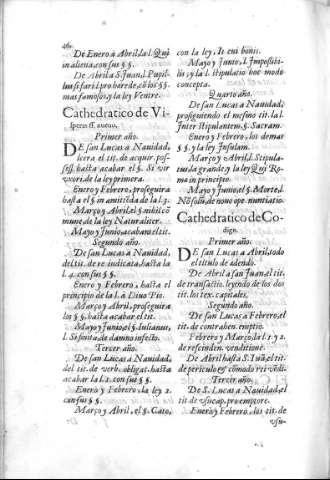 De Enero à Abril, la l. Qui
in aliena, con sus §§.
De Abril a S. Juan, l. Pupil-
lus si fari. l. pro herede, cõ los §§.
mas famosos, y la ley Ventre.
Cathedratico de Vis
peras ff. nueuo.
Primer año.
DE san Lucas a Nauidad,
leera el tit. de acquir. pos-
sess. hasta acabar el §. Si vir
vxori. de la ley primera.
Enero y Febrero, proseguira
hasta el § in amittẽda de la l. 3.
Março y Abril, el § nihil cõ
mune de la ley Naturaliter.
Mayo y Junio, acabarà el tit.
Segundo año.
De san Lucas a Nauidad,
del tit. de re iudicata, hasta la
l. 4. con sus §§.
Enero y Febrero, hasta el
principio de la l. à Diuo Pio.
Março y Abril, proseguira
los §§. hasta acabar el tit.
Mayo y Junio, el §. Iulianus,
l. Si finita, de damno infecto.
Tercer año.
De san Lucas a Nauidad,
del tit. de verb. obligat. hasta
acabar la l. 1. con sus §§.
Enero y Febrero, la ley 2.
con sus §§.
Março y Abril, el §. Cato,
con la ley, Is cui bonis.
Mayo y Junio, l. Impossibi-
lis, y la l. stipulatio hoc modo
concepta.
Quarto año.
De san Lucas a Nauidad,
prosiguiendo el mesmo tit. la l.
Inter stipulantem §. Sacram.
Enero y Febrero, los demas
§§. y la ley Insulam.
Março y Abril, l. Stipula-
tus
Mayo y Junio, el §.
Cathedratico de Co-
digo.
Primer año.
DE san Lucas a Abril, todo
el titulo de edendo.
De Abril a san Juan, el tit.
de transactio. leyendo de los dos
tit. los tex. capitales.
Segundo año.
De san Lucas a Febrero, el
tit. de contrahen. emptio.
Febrero y Março, la l. 1. y 2.
de rescinden. venditione.
De Abril hasta S. Iuã, el tit.
de periculo & cõmodo rei vẽdi.
Tercer año.
De S. Lucas a Nauidad, el
tit. de vsucap. pro emptore.
Enero y Febrero, los tit. de
vsu-